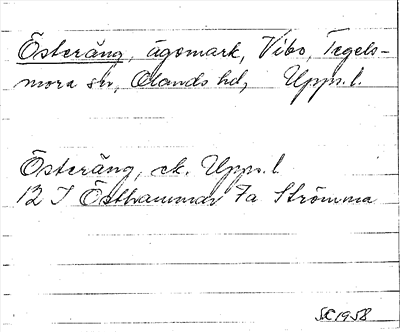 Österäng, ägomark, Vibo, Tegels-
mora sn, Olands hd, Upps. l.
Österäng, ek. Upps. l
12 I Östhammar 7a Strömma
SC 1958